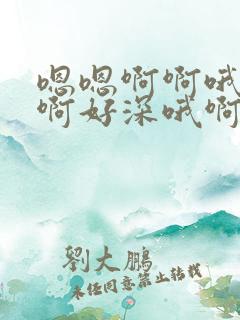 嗯嗯啊啊哦
啊好深哦啊
劉大鵬
未经同意禁止转载